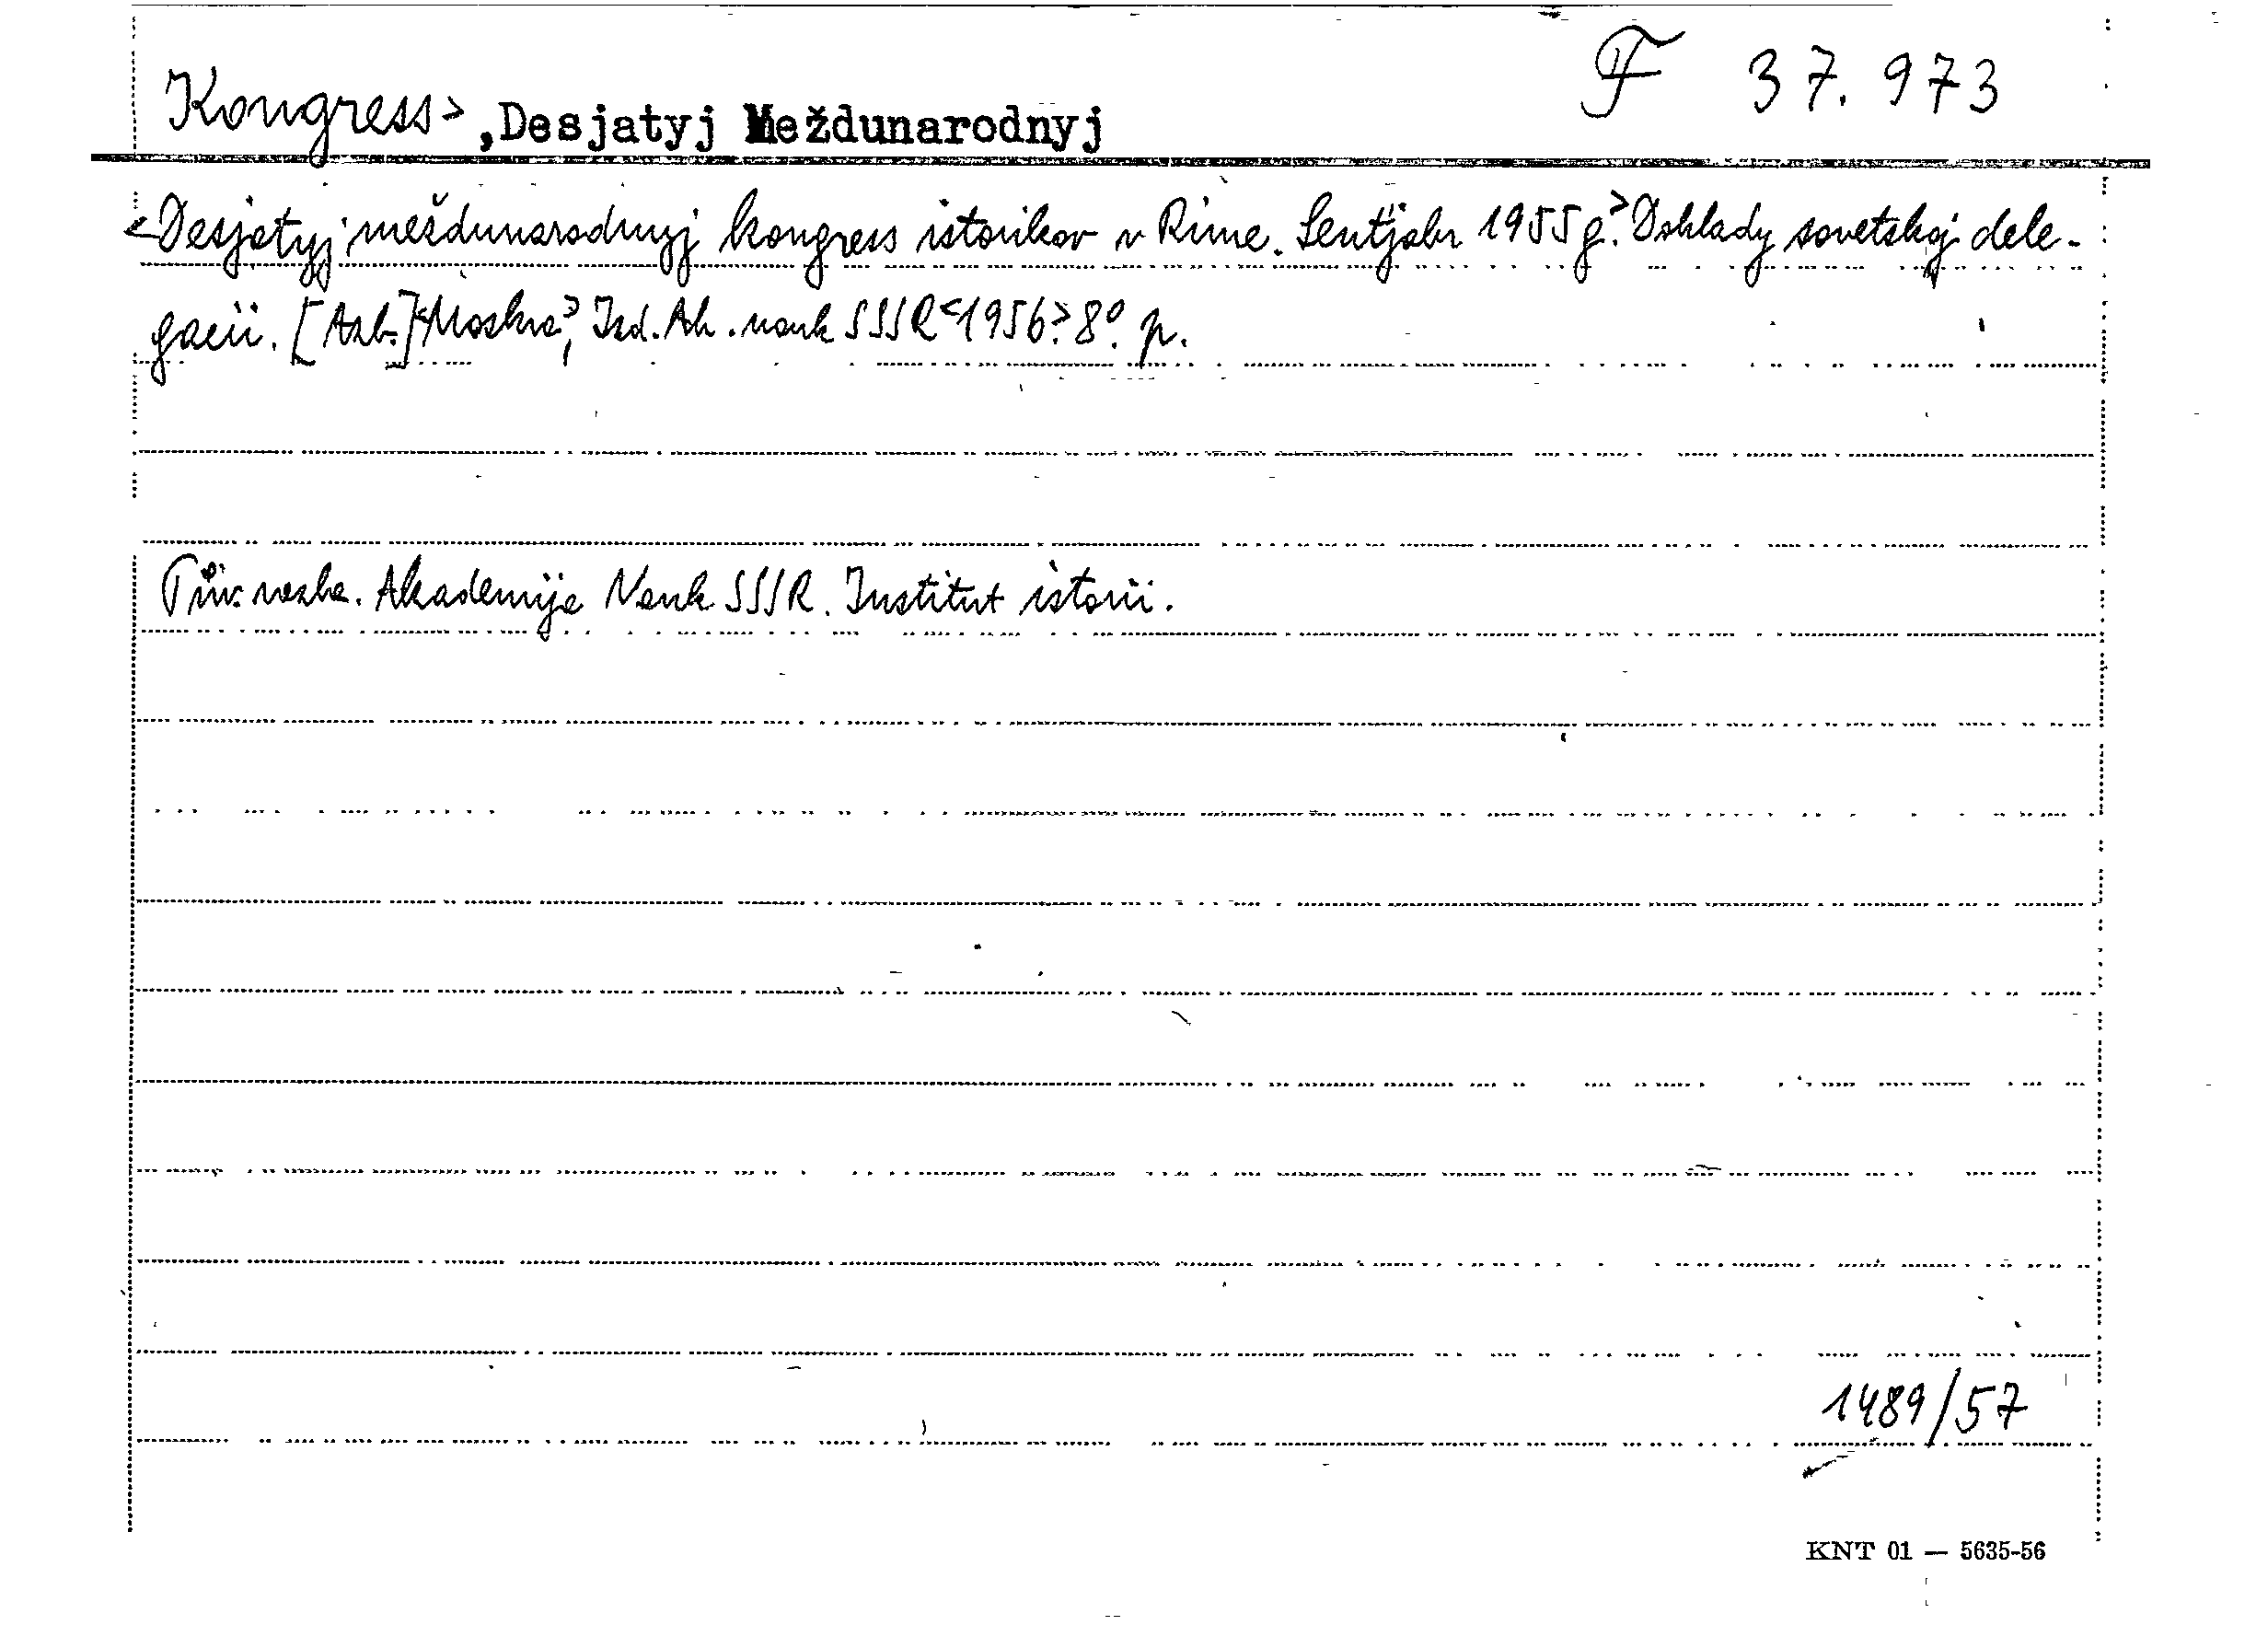 F 37.973
Kongress>, Desjatyj Meždunarodnyj
<Desjatyj meždunarodnyj kongress istorikov v Rime. Sentjabr 1955 g.> Doklady sovetskoj dele-
gacii. [Azb.] <Moskva>, Izd. Ak. nauk SSSR <1956>. 8°. p.
Pův. vazba. Akademija Nauk SSSR. Institut istorii.
1489/57
KNT 01 — 5635-56